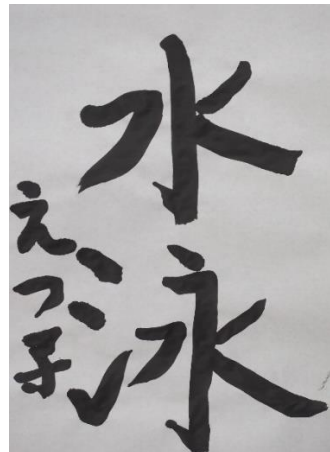 水泳
えつ子